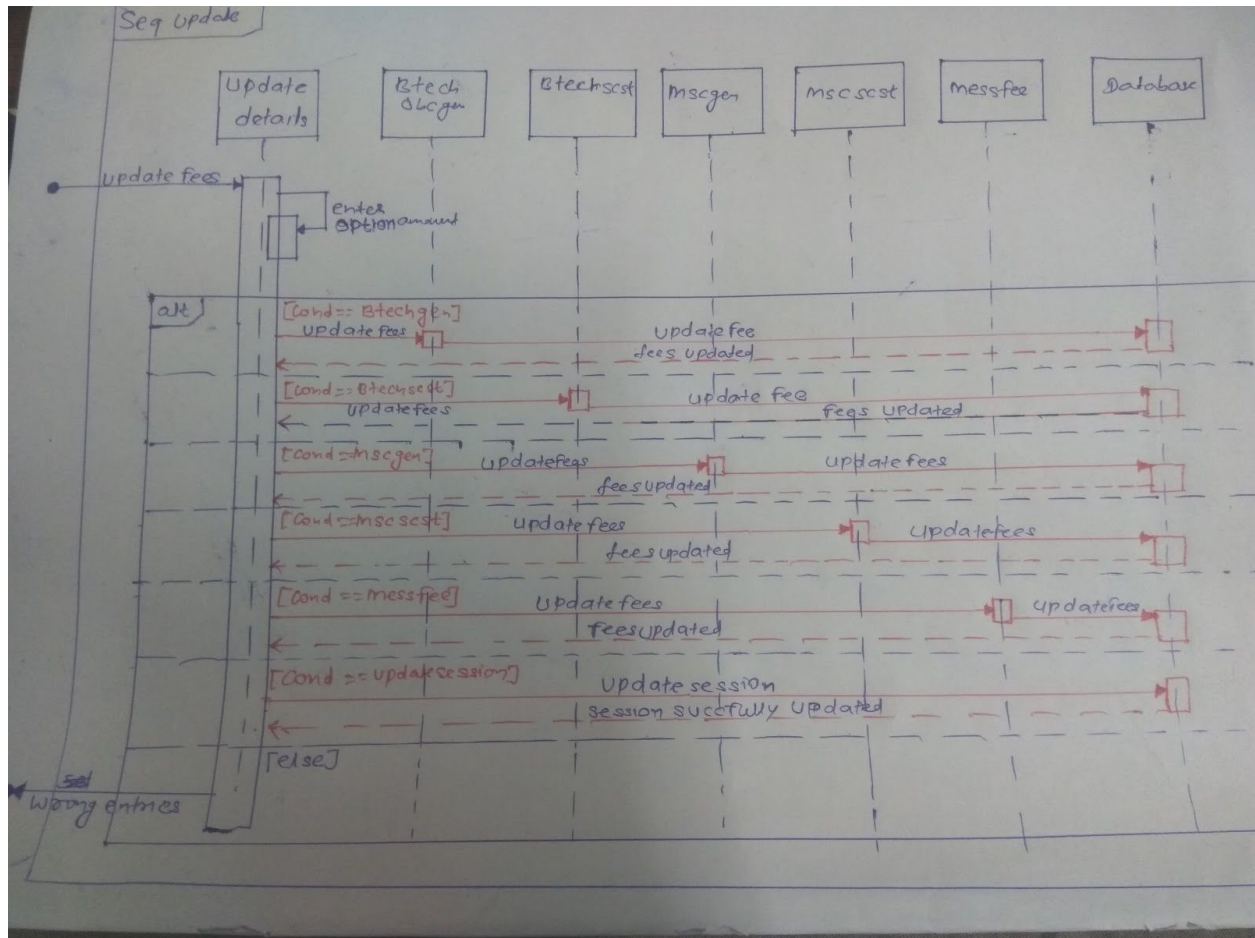 Seq Update
Update
details
Btech
Obcgen
Btechscst
mscgen
mscscst
messfee
Database
update fees
enter
option amount
alt
[Cond== Btechgen]
update fees
update fee
fees updated
[Cond==Btechscst]
updatefees
update fee
fees updated
[Cond=mscgen]
updatefees
updatefees
feesupdated
[Cond==mscscst]
updatefees
updatefees
feesupdated
[Cond ==messfee]
updatefees
updatefees
feesupdated
[Cond == updatesession]
update session
session succfully updated
[else]
wrong entries